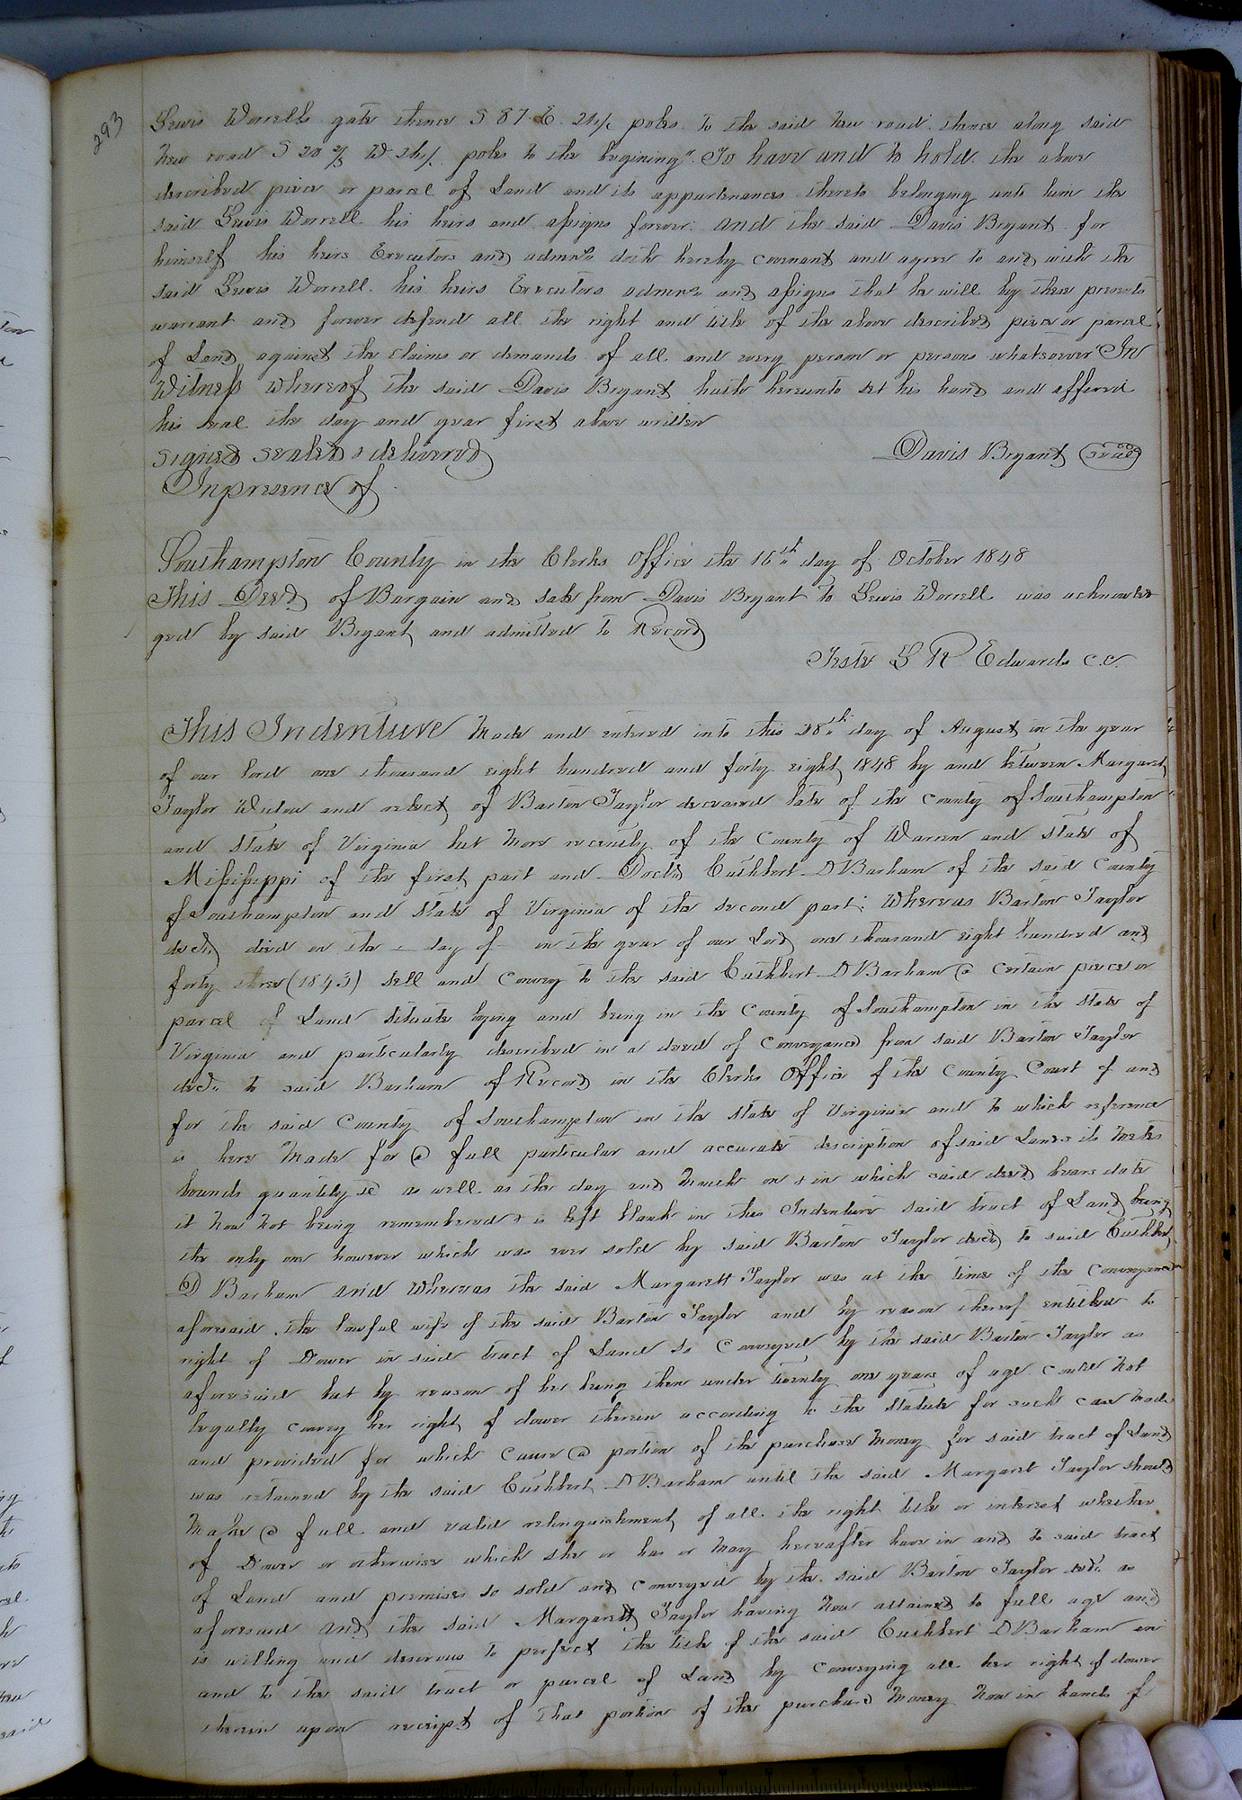 293
Lewis Worrells gate thence S 87 E. 21½ poles to the said New road. thence along said
New road S 20 ⅔ W 26½ poles to the begining". To have and to hold the above
described piece or parcel of Land and its appurtenances thereto belonging unto him the
said Lewis Worrell his heirs and assigns forever. and the said Davis Bryant for
himself his heirs Executors and admrs doth hereby covenant and agree to and with the
said Lewis Worrell. his heirs Executors admrs and assigns that he will by these presents
warrant and forever defend all the right and title of the above described piece or parcel
of Land against the claims or demands of all and every person or persons whatsoever In
Witness Whereof the said Davis Bryant hath hereunto set his hand and affixed
his seal the day and year first above written
signed sealed & delivered Davis Bryant (seal)
In presence of
Southampton County in the Clerks Office the 16th day of October 1848
This Deed of Bargain and sale from Davis Bryant to Lewis Worrell was acknowled
ged by said Bryant and admitted to Record
Teste L R Edwards c.c.
This Indenture Made and entered into this 28th day of August in the year
of our lord one thousand eight hundred and forty eight 1848 by and between Margaret
Taylor Widow and relect of Barton Taylor deceased late of the County of Southampton
and State of Virginia but More recently of the County of Warren and State of
Mississeppi of the first part and Doctr Cuthbert D Barham of the said County
of Southampton and State of Virginia of the second part: Whereas Barton Taylor
decd did on the — day of — in the year of our Lord one thousand eight hundred and
forty three (1843) sell and convey to the said Cuthbert D Barham a certain piece or
parcel of Land situate lying and being in the County of Southampton in the State of
Virginia and particularly described in a deed of Conveyance from said Barton Taylor
decd. to said Barham of Record in the Clerks Office of the County Court of and
for the said County of Southampton in the State of Virginia and to which reference
is here Made for a full particular and accurate description of said Land its metes
bounds quantity &c as well as the day and Month on & in which said deed bears date
it Now Not being remembered & is left blank in this Indenture said tract of Land being
the only one however which was ever sold by said Barton Taylor decd to said Cuthbert
D Barham and Whereas the said Margarett Taylor was at the time of the Conveyance
aforesaid the lawful wife of the said Barton Taylor and by reason thereof entitled to
right of Dower in said tract of Land so Conveyed by the said Barton Taylor as
aforesaid but by reason of her being then under twenty one years of age could Not
legally convey her right of dower therein according to the statute for such case Made
and provided for which Cause a portion of the purchase Money for said tract of Land
was retained by the said Cuthbert D Barham until the said Margaret Taylor should
Make a full and valid relinquishment of all the right title or interest whether
of Dower or otherwise which she or has or May hereafter have in and to said tract
of Land and premises so sold and conveyed by the said Barton Taylor decd. as
aforesaid and the said Margarett Taylor having Now attained to full age and
is willing and desirous to perfect the title of the said Cuthbert D Barham in
and to the said tract or parcel of Land by conveying all her right of dower
therein upon receipt of that portion of the purchase Money Now in hands of